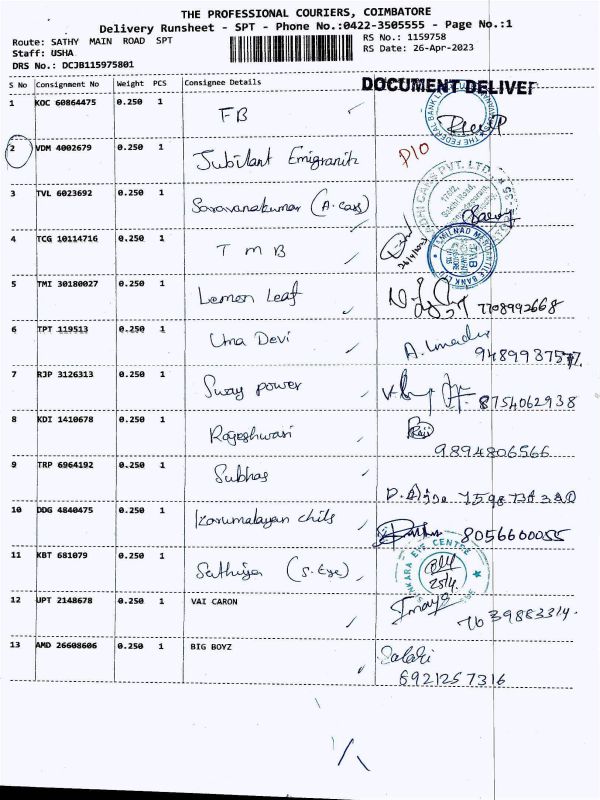 THE PROFESSIONAL COURIERS, COIMBATORE
Delivery Runsheet - SPT - Phone No.:0422-3505555 - Page No.:1
Route: SATHY MAIN ROAD SPT
Staff: USHA
DRS No.: DCJB115975801
RS No.: 1159758
RS Date: 26-Apr-2023
S No Consignment No Weight PCS Consignee Details
DOCUMENT DELIVER
1 KOC 60864475 0.250 1 FB
2 VDM 4002679 0.250 1 Jubilant Emigranik P10
3 TVL 6023692 0.250 1 Saravanakumar (A. Cars)
4 TCG 10114716 0.250 1 TMB 26/4/2023
5 TMI 30180027 0.250 1 Lemon Leaf 7708992668
6 TPT 119513 0.250 1 Uma Devi A. Umadevi 9489937577
7 RJP 3126313 0.250 1 Sway power 8754062938
8 KDI 1410678 0.250 1 Rajeshwari Raji 9894806566
9 TRP 6964192 0.250 1 Subhas
10 DDG 4840475 0.250 1 8056600055
11 KBT 681079 0.250 1 Sathiya (S. Eye) 25/4
12 UPT 2148678 0.250 1 VAI CARON 7639883314.
13 AMD 26608606 0.250 1 BIG BOYZ 6921257316